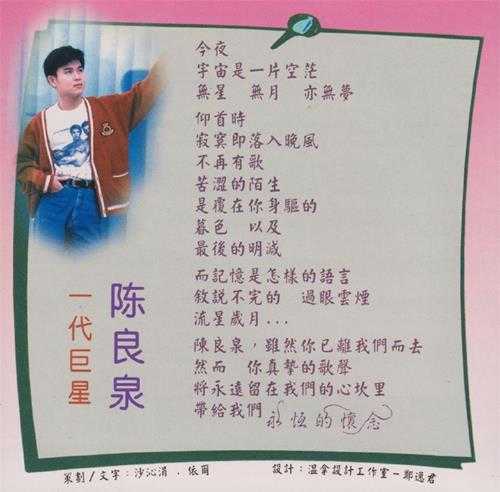 今夜
宇宙是一片空茫
無星　無月　亦無夢
仰首時
寂寞即落入晚風
不再有歌
苦澀的陌生
是覆在你身驅的
暮色　以及
最後的明滅
而記憶是怎樣的語言
敘說不完的　過眼雲煙
流星歲月...
陳良泉，雖然你已離我們而去
然而　你真摯的歌聲
將永遠留在我們的心坎里
帶給我們永恒的懷念
陈良泉
一代巨星
策劃/文字：沙沁涓．依爾
設計：溫拿設計工作室－鄭過君